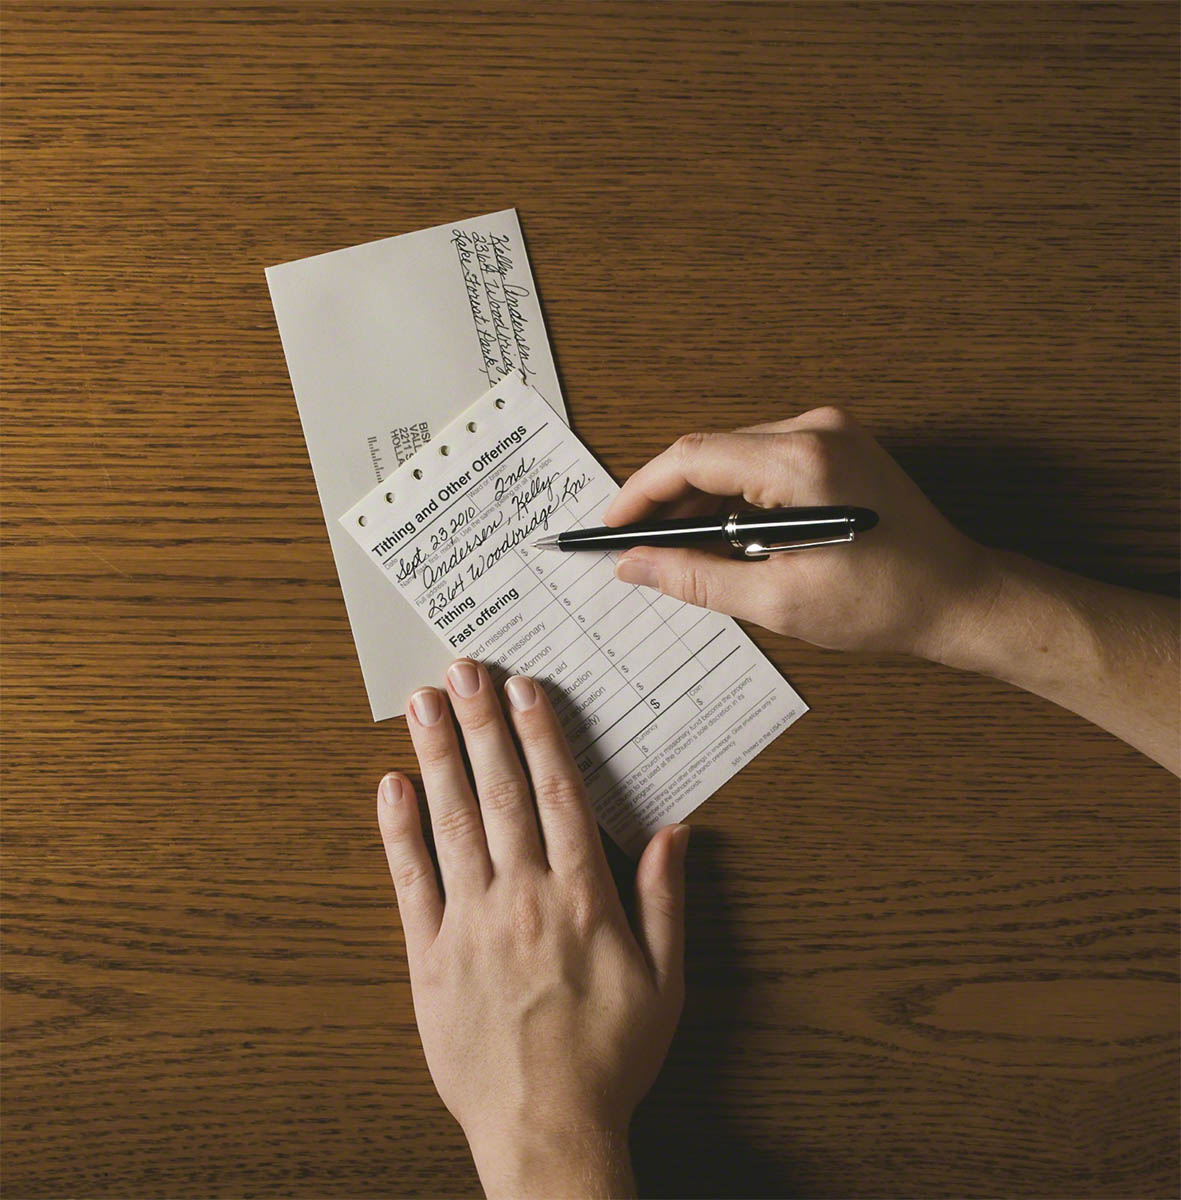 Kelly Andersen
2364 Woodbridge
Lake Forest Park,
BIS
VALL
2211 S
HOLLA
Tithing and Other Offerings
Date
Ward or branch
Sept. 23 2010
2nd
Use the same spelling on all your slips
Andersen, Kelly
Full address
2364 Woodbridge Ln.
Tithing $
Fast offering $
Ward missionary $
missionary $
Mormon $
aid $
$
education $
Currency
$
Coin
$
to the Church's missionary fund become the property
to be used at the Church's sole discretion in its
program.
with tithing and other offerings in envelope. Give envelope only to
member of the bishopric or branch presidency.
Keep for your own records.
5/01. Printed in the USA. 31592